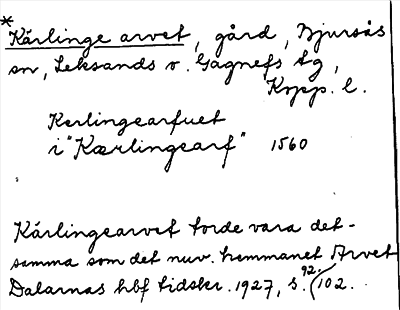 *Kärlinge arvet, gård, Bjursås
sn, Leksands o. Gagnefs tg,
Kopp. l.
Kerlingearfuet
i "Kærlingearf" 1560
Kärlingearvet torde vara det-
samma som det nuv. hemmanet Arvet
Dalarnas hbf tidskr. 1927, s. 92. (102.